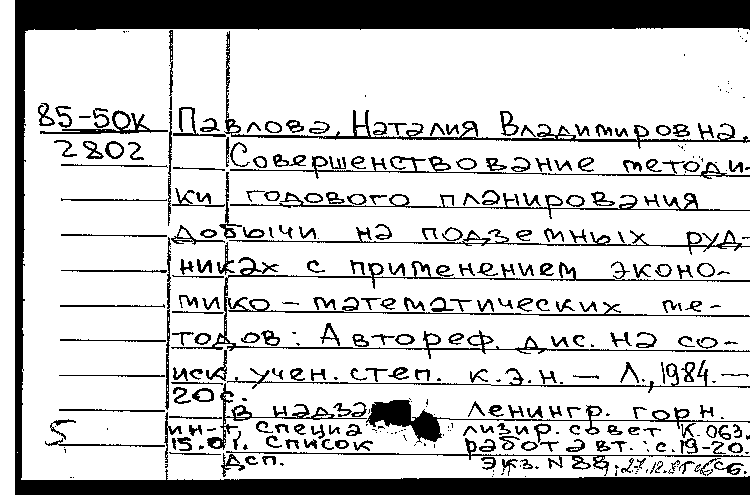 85-50к Павлова, Наталия Владимировна.
2802 Совершенствование методи-
ки годового планирования
добычи на подземных руд-
никах с применением эконо-
мико-математических ме-
тодов: Автореф. дис. на со-
иск. учен. степ. к.э.н. – Л., 1984. –
20 с.
В надза Ленингр. горн.
ин-т, специа лизир. совет К 063.
15.0 Список работ авт.: с. 19-20.
Дсп. Экз. N 88
5